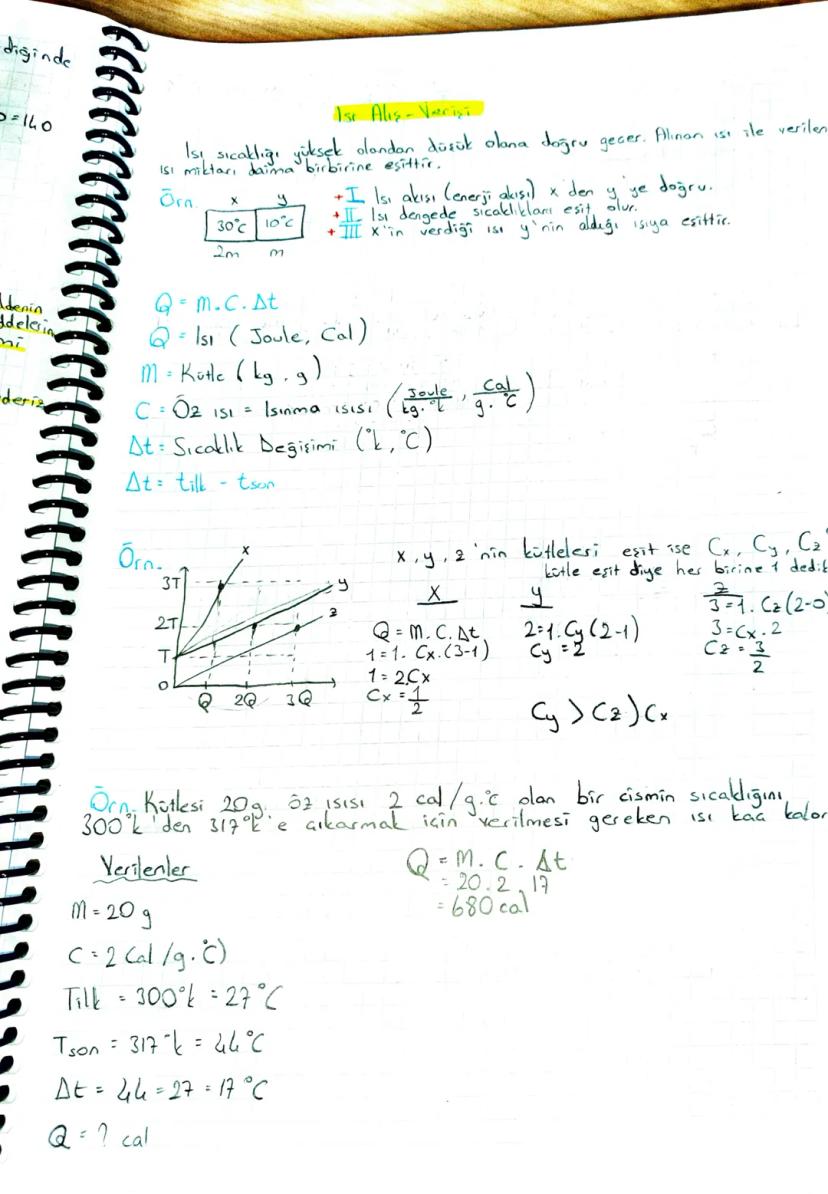 diğinde
=140
denin
ddelerin
mi
deriz
Isı Alış-Verişi
Isı sıcaklığı yüksek olandan düşük olana doğru geçer. Alınan ısı ile verilen
ısı miktarı daima birbirine eşittir.
Örn.
x y
30°c 10°c
2m m
+ I Isı akışı (enerji akışı) x'den y'ye doğru.
+ II Isı dengede sıcaklıkları eşit olur.
+ III x'in verdiği ısı y'nin aldığı ısıya eşittir.
Q = M.C.Δt
Q = Isı (Joule, Cal)
M = Kütle (kg, g)
C = Öz ısı = Isınma ısısı (Joule/kg.°k, Cal/g.°C)
Δt = Sıcaklık Değişimi (°k, °C)
Δt = tilk - tson
Örn.
3T
2T
T
0
Q 2Q 3Q
x
y
z
x, y, z'nin kütleleri eşit ise Cx, Cy, Cz
kütle eşit diye her birine 1 dedik
X
Q = M.C.Δt
1=1.Cx.(3-1)
1=2.Cx
Cx = 1/2
y
2=1.Cy(2-1)
Cy = 2
z
3=1.Cz(2-0)
3=Cx.2
Cz = 3/2
Cy > Cz > Cx
Örn. Kütlesi 20g öz ısısı 2 cal/g.°c olan bir cismin sıcaklığını
300°k'den 317°k'e çıkarmak için verilmesi gereken ısı kaç kalor
Verilenler
M = 20 g
C = 2 Cal/g.°C)
Tilk = 300°k = 27°C
Tson = 317°k = 44°C
Δt = 44 = 27 = 17°C
Q = ? cal
Q = M. C. Δt
= 20.2.17
= 680 cal